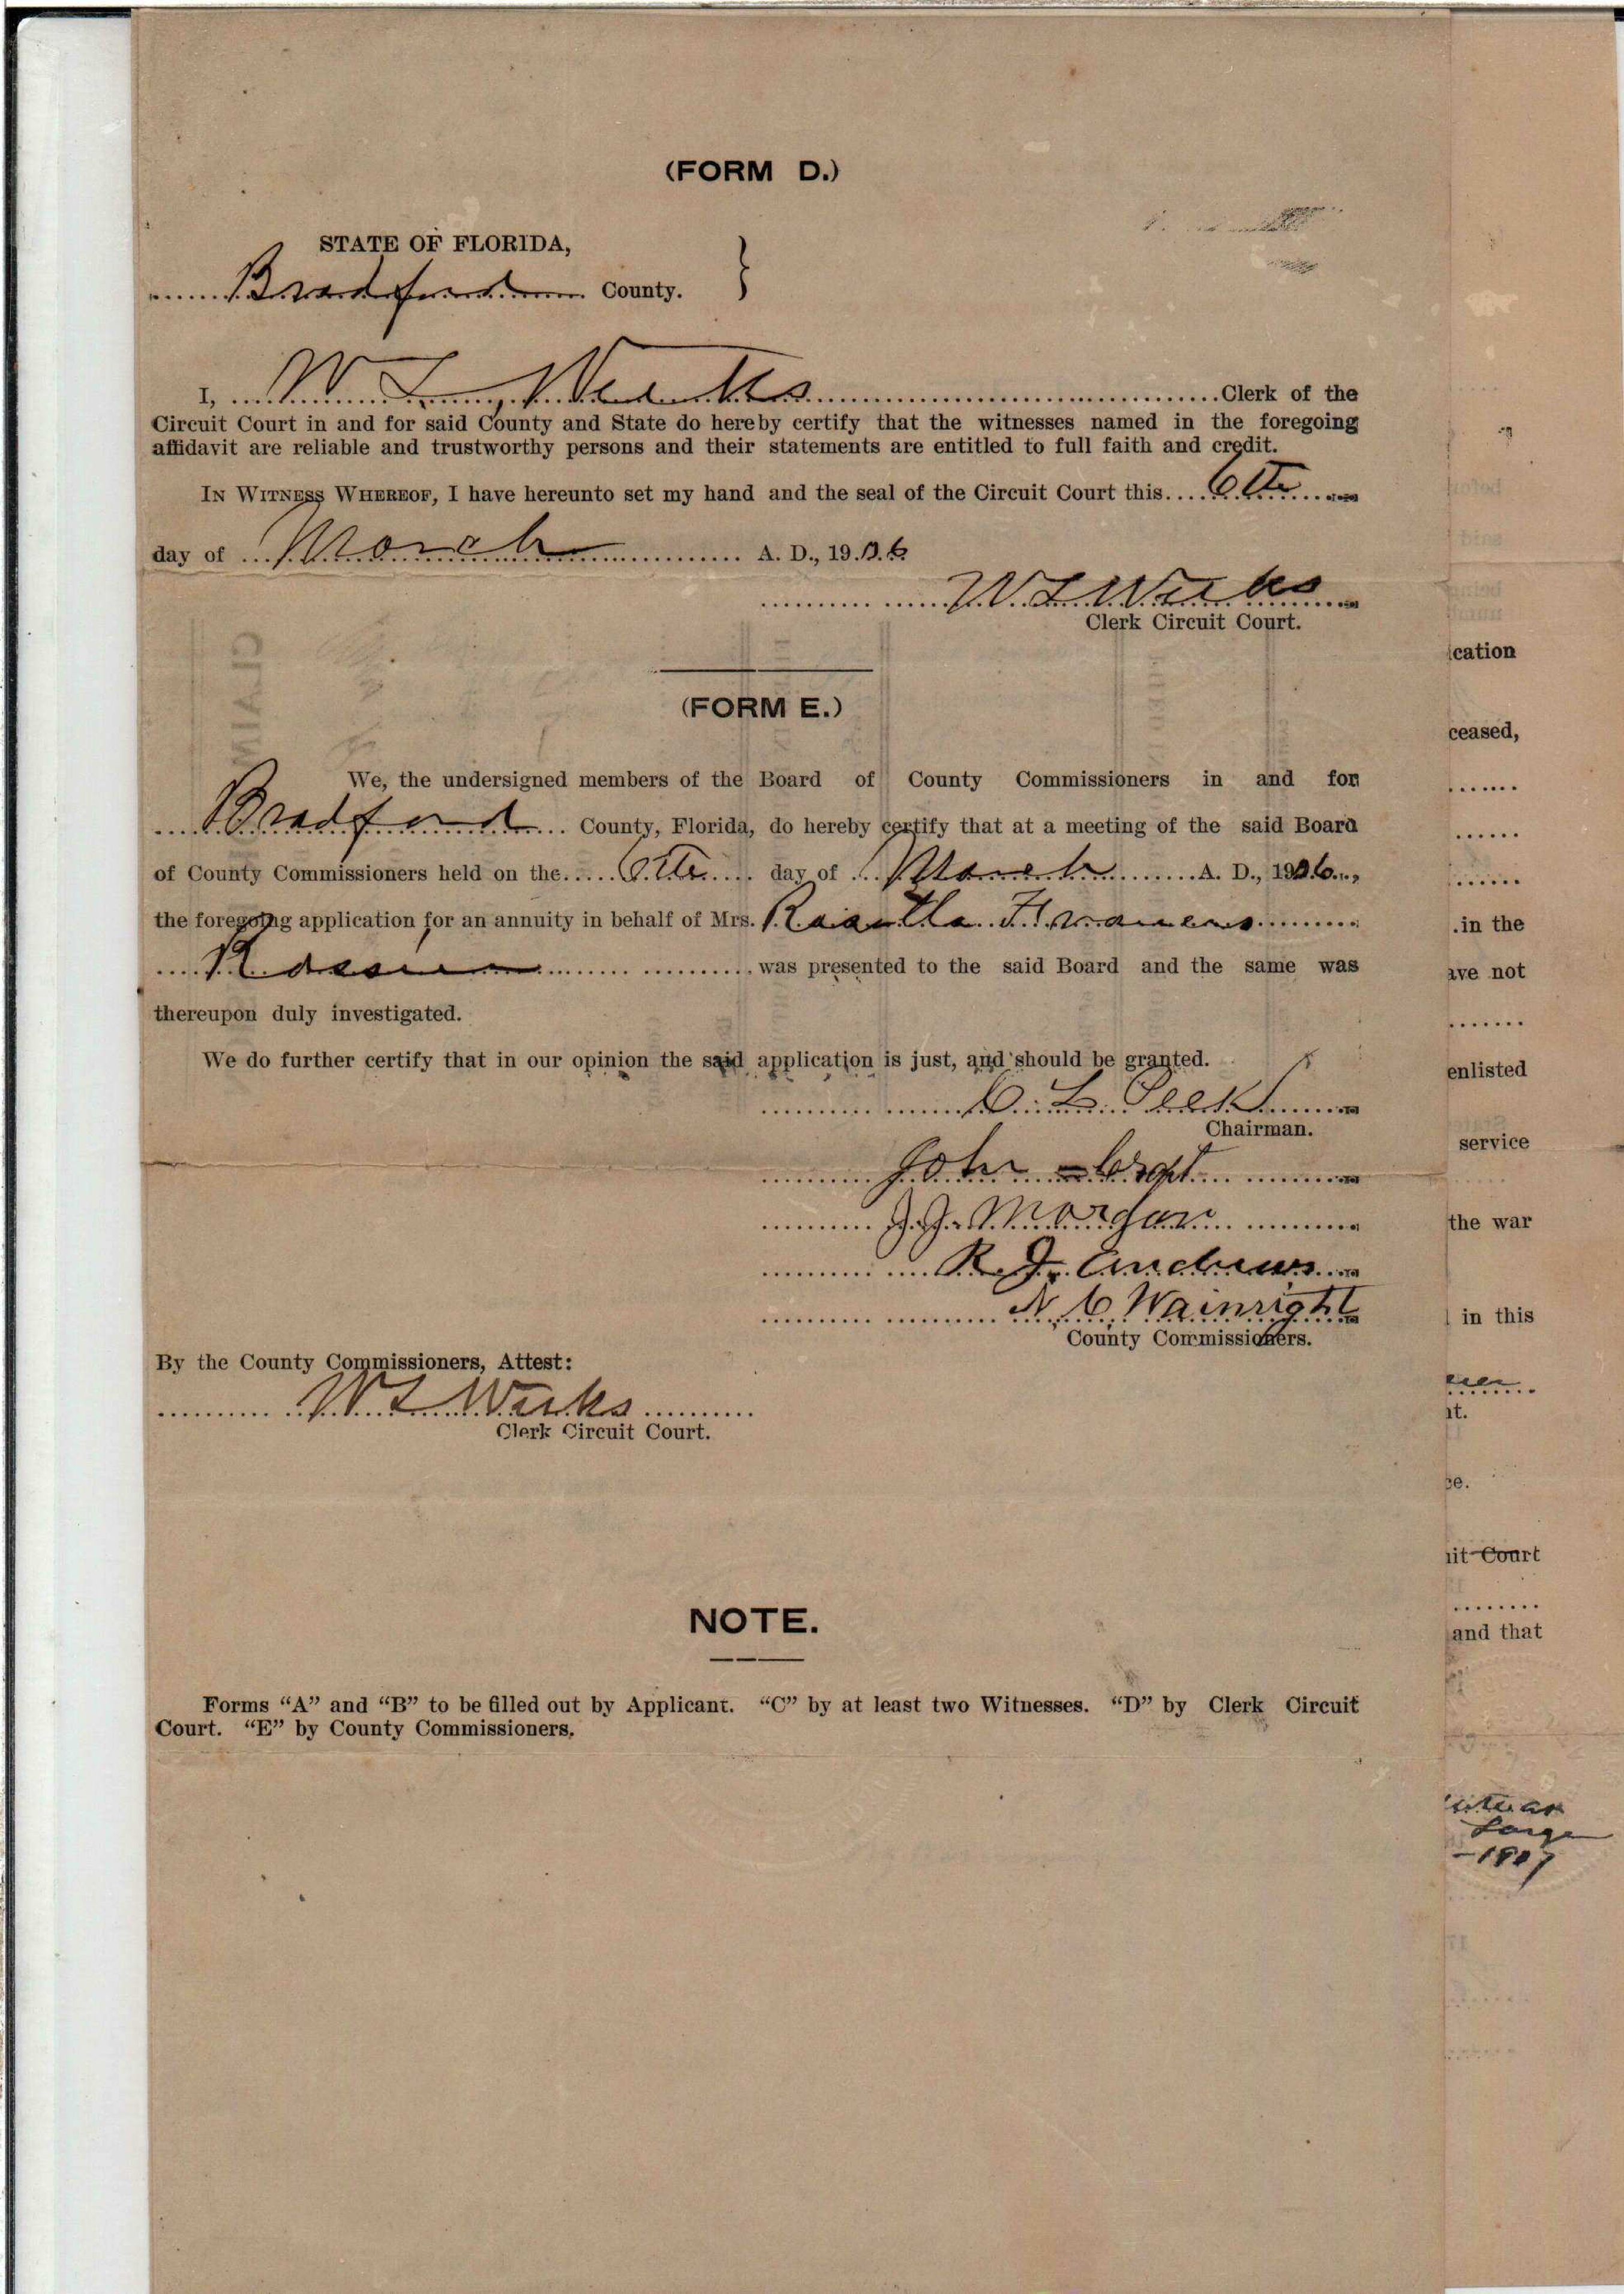 (FORM D.)
STATE OF FLORIDA,
Bradford County.
I, W. L. Weeks Clerk of the
Circuit Court in and for said County and State do hereby certify that the witnesses named in the foregoing
affidavit are reliable and trustworthy persons and their statements are entitled to full faith and credit.
IN WITNESS WHEREOF, I have hereunto set my hand and the seal of the Circuit Court this 6th
day of March A. D., 19
W L Weeks
Clerk Circuit Court.
(FORM E.)
We, the undersigned members of the Board of County Commissioners in and for
Bradford County, Florida, do hereby certify that at a meeting of the said Board
of County Commissioners held on the 6th day of March A. D., 190
the foregoing application for an annuity in behalf of Mrs.
was presented to the said Board and the same was
thereupon duly investigated.
We do further certify that in our opinion the said application is just, and should be granted.
Chairman.
John
J. J. Morgan
R. J. Andrews
N C Wainright
County Commissioners.
By the County Commissioners, Attest:
W L Weeks
Clerk Circuit Court.
NOTE.
Forms “A” and “B” to be filled out by Applicant. “C” by at least two Witnesses. “D” by Clerk Circuit
Court. “E” by County Commissioners.
cation
ceased,
in the
ave not
enlisted
service
the war
in this
nt.
ce.
uit Court
and that
Large
-1907